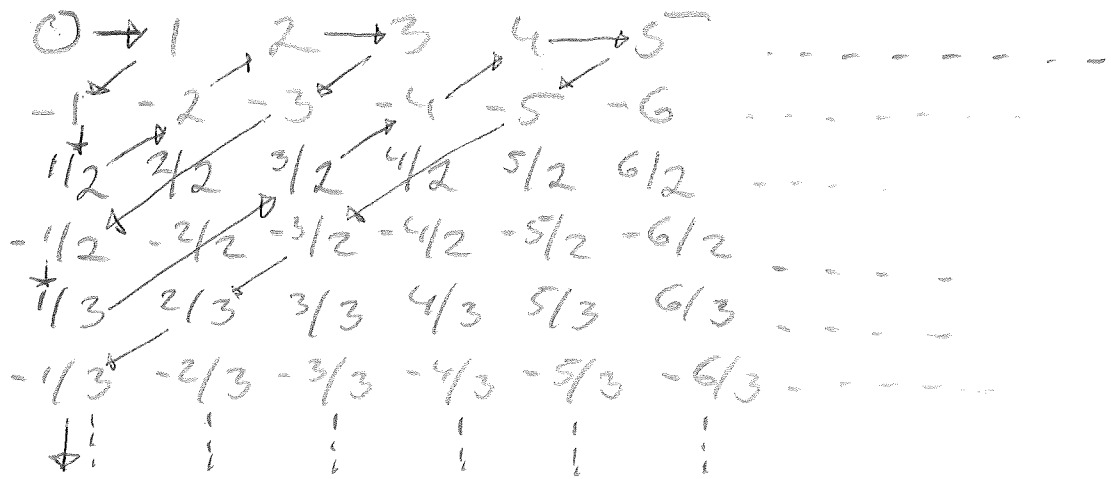 0 1 2 3 4 5
-1 -2 -3 -4 -5 -6
1/2 2/2 3/2 4/2 5/2 6/2
-1/2 -2/2 -3/2 -4/2 -5/2 -6/2
1/3 2/3 3/3 4/3 5/3 6/3
-1/3 -2/3 -3/3 -4/3 -5/3 -6/3